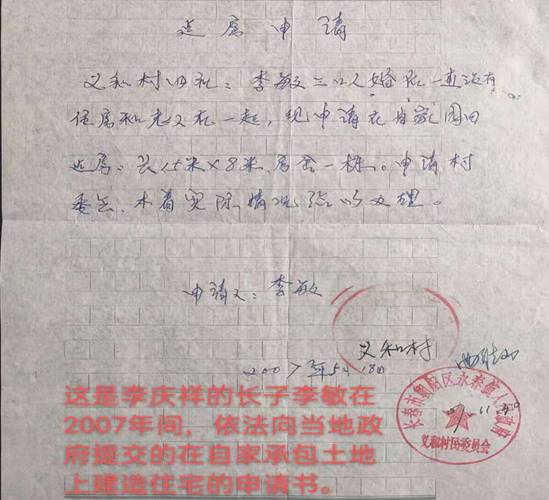 造房申请
义和村四社：李敏三口人婚后一直没有
住房和老人在一起，现申请在自家园田
造房：长15米×8米房舍一栋。申请村
委会，本着实际情况给以办理。
申请人：李敏
义和村
2007年5月18日
长春市朝阳区永春镇人民政府
义和村村民委员会
这是李庆祥的长子李敏在
2007年间，依法向当地政
府提交的在自家承包土地
上建造住宅的申请书。